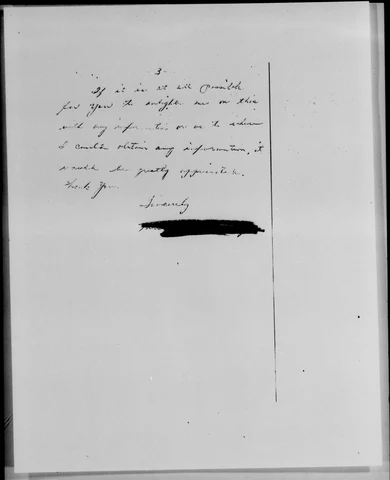 3
If it is at all possible
for you to enlighten me on this
with any information or as to where
I could obtain any information, it
would be greatly appreciated.
Thank you.
Sincerely